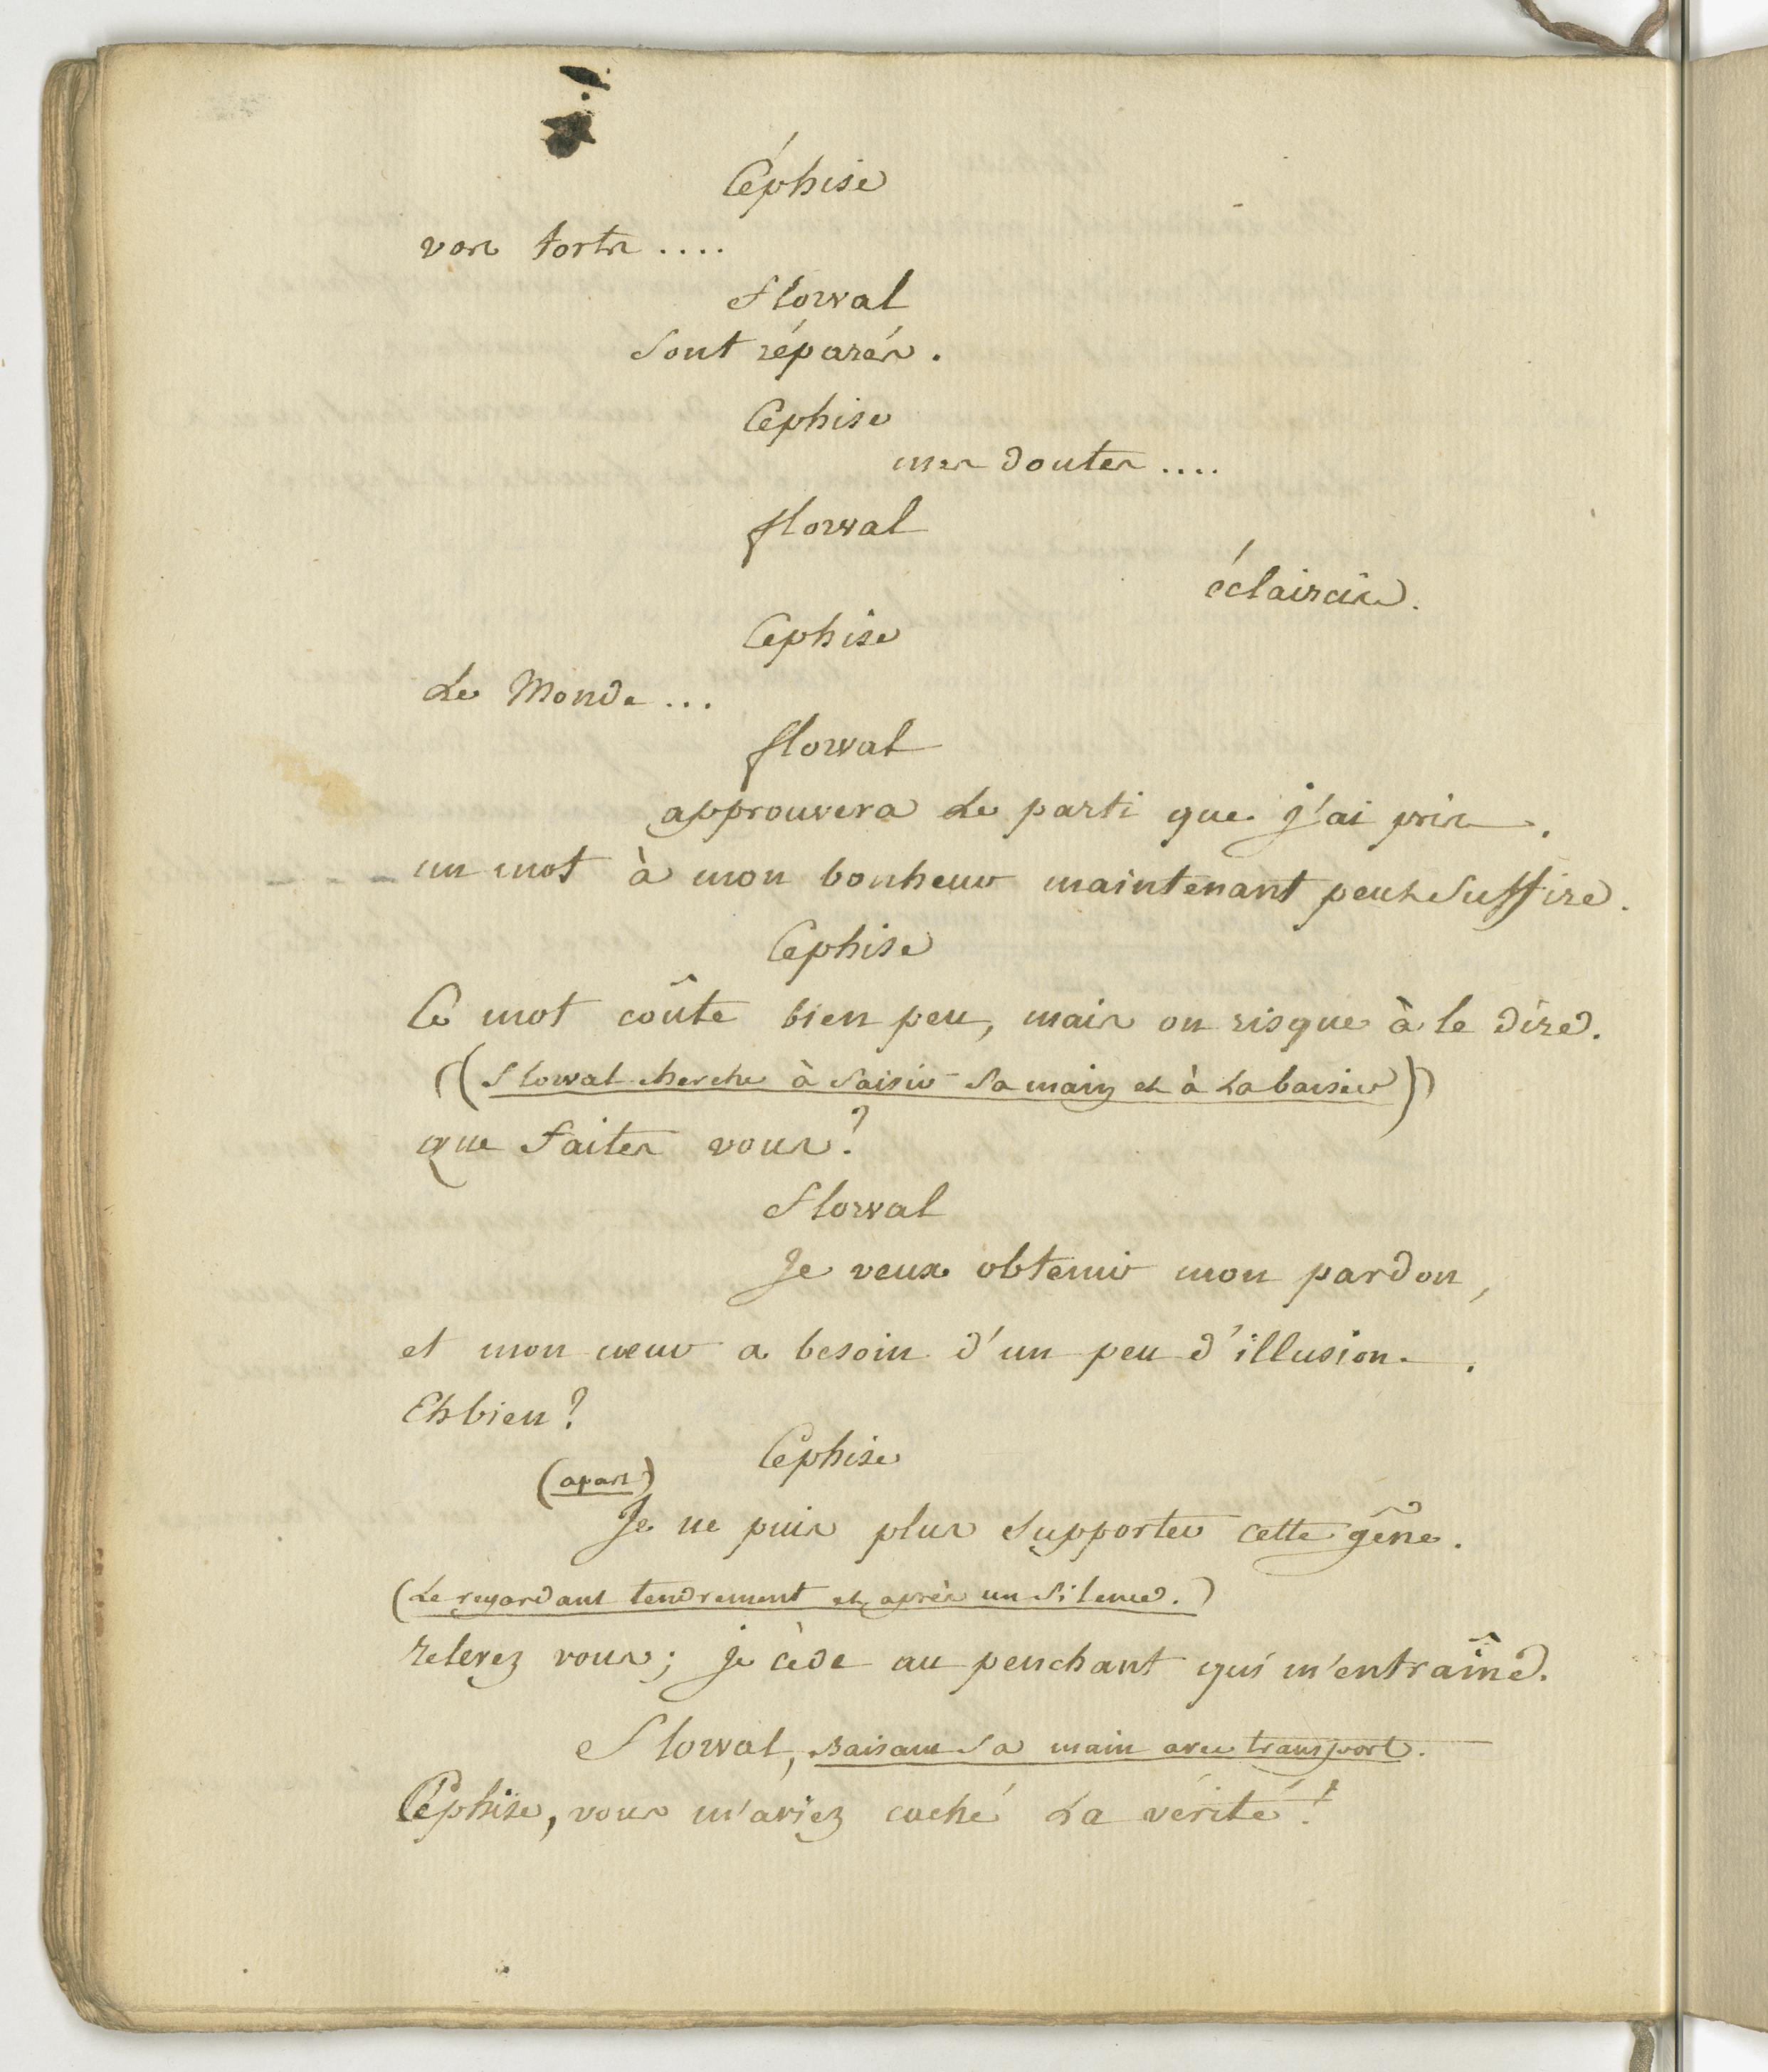 Céphise
vos torts ....
Florval
Sont réparés.
Cephise
mes doutes ....
florval
éclaircis.
Cephise
Le Monde ...
florval
approuvera Le parti que j'ai pris.
un mot à mon bonheur maintenant peut Suffire.
Cephise
Ce mot coûte bien peu, mais on risque à le dire.
((Florval cherche à Saisir Sa main et à La baiser))
que faites vous?
Florval
Je veux obtenir mon pardon,
et mon cœur a besoin d'un peu d'illusion.
Eh bien?
Céphise
(apart)
Je ne puis plus Supporter cette gêne.
(Le regardant tendrement et après un Silence.)
relevez vous; je cède au penchant qui m'entraîne.
Florval, Baisant Sa main avec transport.
Céphise, vous m'aviez caché La vérité!